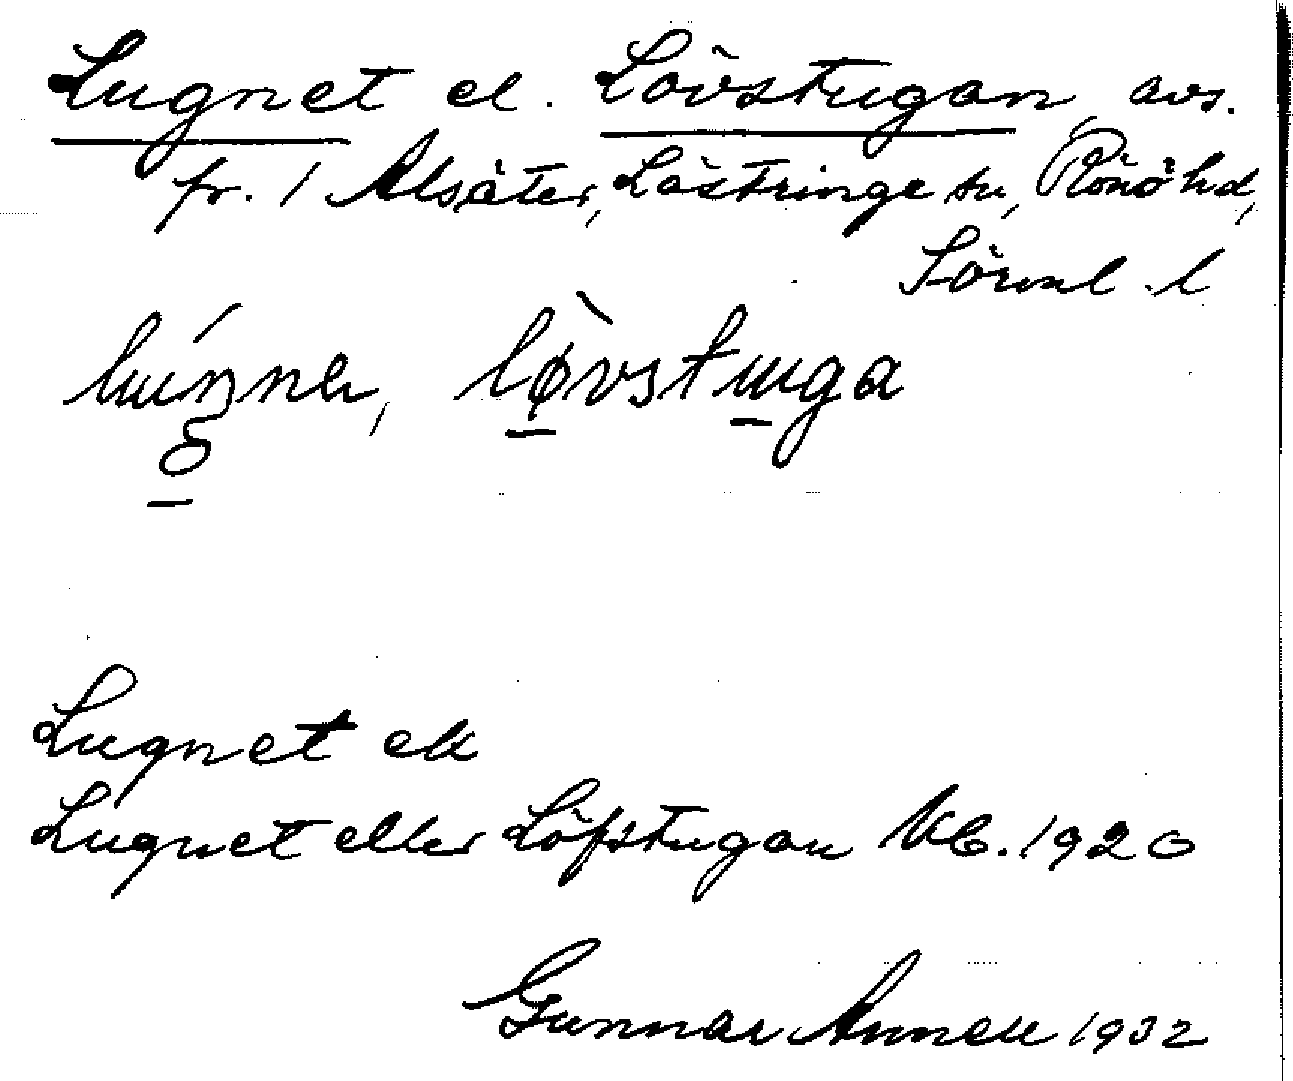 Lugnet el. Lövstugan, avs.
fr. 1 Alsäter, Lästringe sn, Rönö hd,
Södml. l
lúŋnə, lø̀vstuga
Lugnet ek
Lugnet eller Löfstugan Kb. 1920
Gunnar Annell 1932